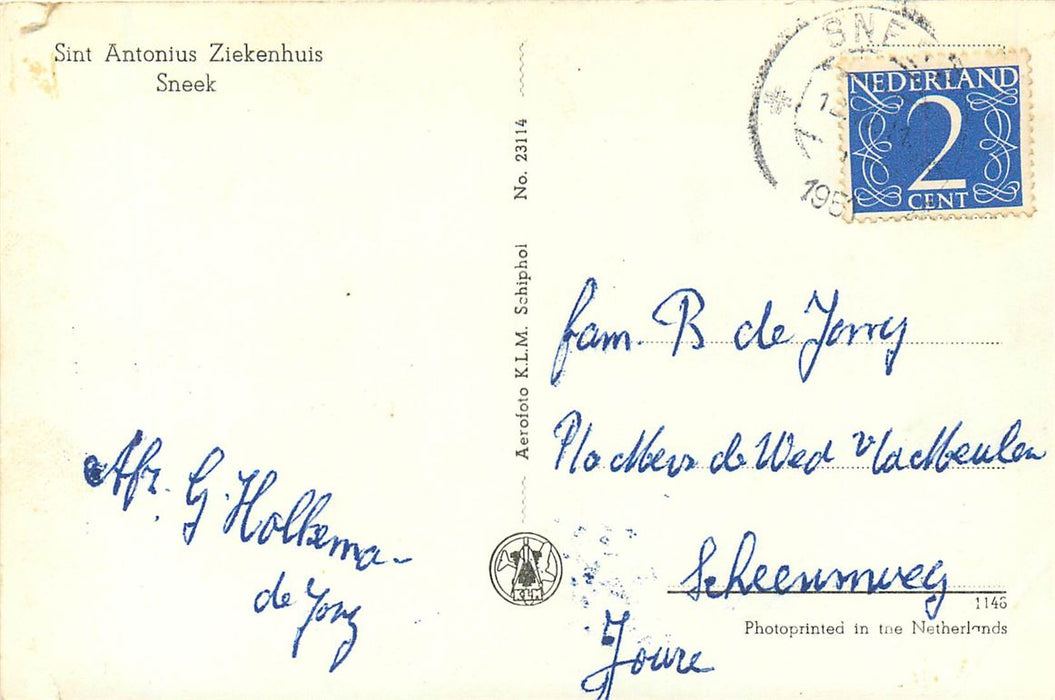 Sint Antonius Ziekenhuis
Sneek
Afz. G Holkema-
de Jong
Aerofoto K.L.M. Schiphol No. 23114
SNEEK
1951
NEDERLAND
2
CENT
fam. B de Jong
p/a Mevr de Wed v/d Meulen
Scheenweg
Joure
1146
Photoprinted in the Netherlands